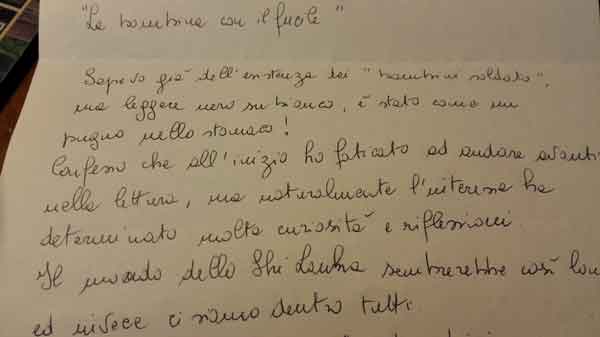 "La bambina con il fucile"
Sapevo già dell'esistenza dei "bambini soldato",
ma leggere nero su bianco, è stato come un
pugno nello stomaco!
Confesso che all'inizio ho faticato ad andare avanti
nella lettura, ma naturalmente l'interesse ha
determinato molta curiosità e riflessioni.
Il mondo dello Shi Lanka sembrerebbe così lon
ed invece ci siamo dentro tutti.